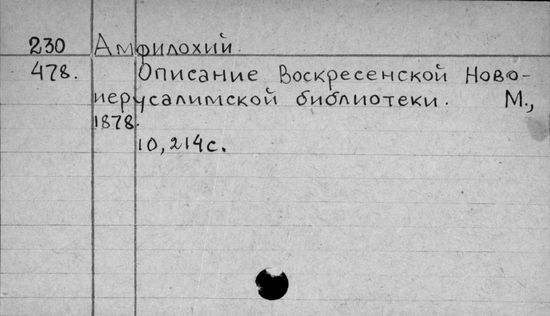 230 Амфилохий.
478. Описание Воскресенской Ново-
иерусалимской библиотеки. М.,
1878.
10, 214 с.